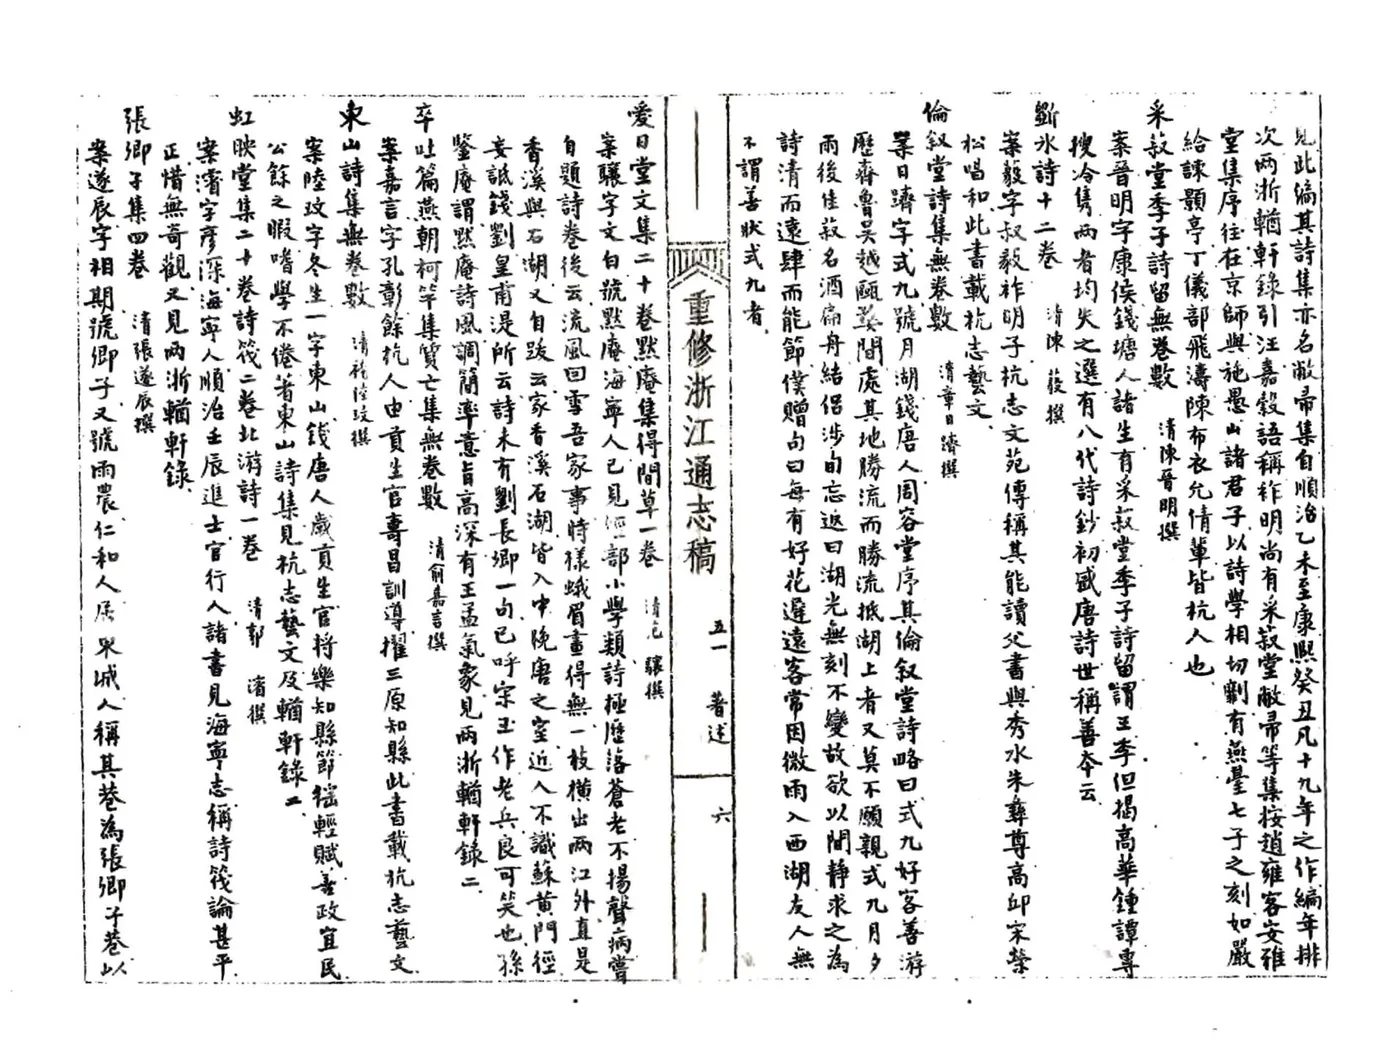 見此編其詩集亦名敝帚集自順治乙未至康熙癸丑凡十九年之作編年排
次兩浙輶軒錄引汪嘉穀語稱祚明尚有采菽堂敝帚等集按趙雍客安雅
堂集序往在京師與施愚山諸君子以詩學相切劘有燕臺七子之刻如嚴
給諫顥亭丁儀部飛濤陳布衣允倩輩皆杭人也
采菽堂季子詩留無卷數　清陳晉明撰
案晉明字康侯錢塘人諸生有采菽堂季子詩留謂王季但揭高華鍾譚專
搜冷雋兩者均失之選有八代詩鈔初盛唐詩世稱善本云
斷氷詩十二卷　清陳　撰
案毅字叔毅祚明子杭志文苑傳稱其能讀父書與秀水朱彝尊高邱宋犖
松唱和此書載杭志藝文
倫叙堂詩集無卷數　清章日躋撰
案日躋字式九號月湖錢唐人周容堂序其倫叙堂詩略曰式九好客善游
歷齊魯吳越甌冀間處其地勝流而勝流抵湖上者又莫不願親式九月夕
雨後佳菽名酒扁舟結侶涉旬忘返曰湖光無刻不變故欲以閒靜求之為
詩清而遠肆而能節僕贈句曰每有好花遲遠客常因微雨入西湖友人無
不謂善狀式九者
重修浙江通志稿　五一　著述　六
愛日堂文集二十卷默庵集得閒草一卷　清范驤撰
案驤字文白號默庵海寧人已見經部小學類詩極歷落蒼老不揚聲病嘗
自題詩卷後云流風回雪吾家事時樣蛾眉畫得無一枝橫出兩江外直是
香溪與石湖又自跋云家香溪石湖皆入中晚唐之室近人不識蘇黃門徑
妄詆錢劉皇甫湜所云詩未有劉長卿一句已呼宋玉作老兵良可笑也孫
鑒庵謂默庵詩風調簡率意旨高深有王孟氣象見兩浙輶軒錄二
卒吐篇燕朝柯竿集質亡集無卷數　清俞嘉言撰
案嘉言字孔彰餘杭人由貢生官壽昌訓導擢三原知縣此書載杭志藝文
東山詩集無卷數　清　陸玟撰
案陸玟字冬生一字東山錢唐人歲貢生官將樂知縣節徭輕賦善政宜民
公餘之暇嗜學不倦著東山詩集見杭志藝文及輶軒錄二
虹映堂集二十卷詩筏二卷北游詩一卷　清郭　濬撰
案濬字彥深海寧人順治壬辰進士官行人諸書見海寧志稱詩筏論甚平
正惜無奇觀又見兩浙輶軒錄
張卿子集四卷　清張遂辰撰
案遂辰字相期號卿子又號雨農仁和人居東城人稱其巷為張卿子巷以